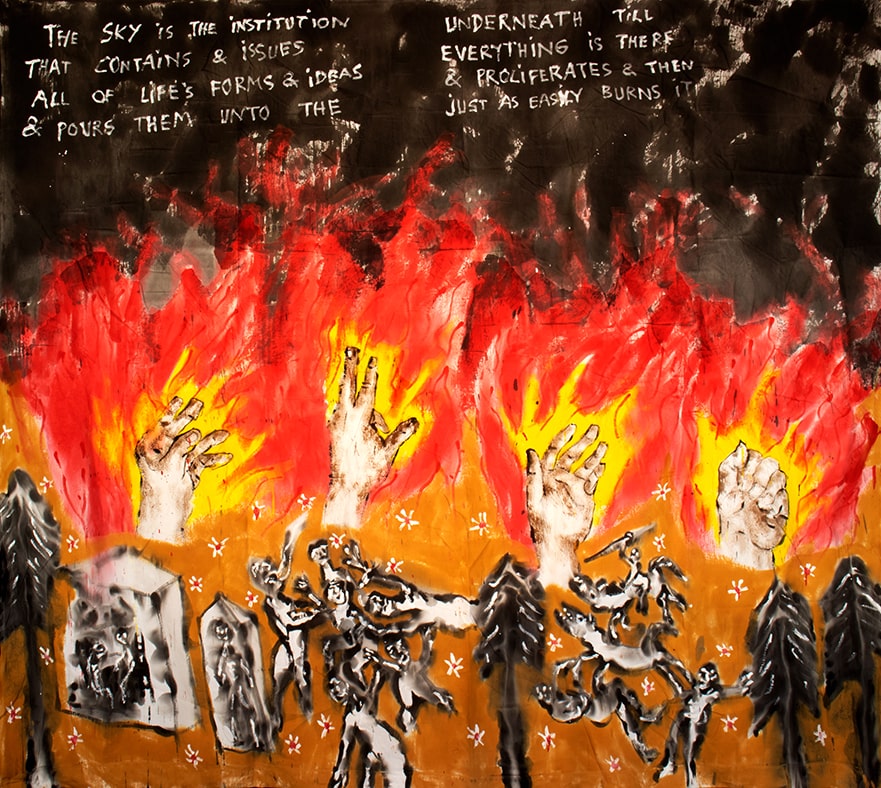 THE SKY IS THE INSTITUTION
THAT CONTAINS & ISSUES
ALL OF LIFE'S FORMS & IDEAS
& POURS THEM UNTO THE
UNDERNEATH TILL
EVERYTHING IS THERE
& PROLIFERATES & THEN
JUST AS EASILY BURNS IT